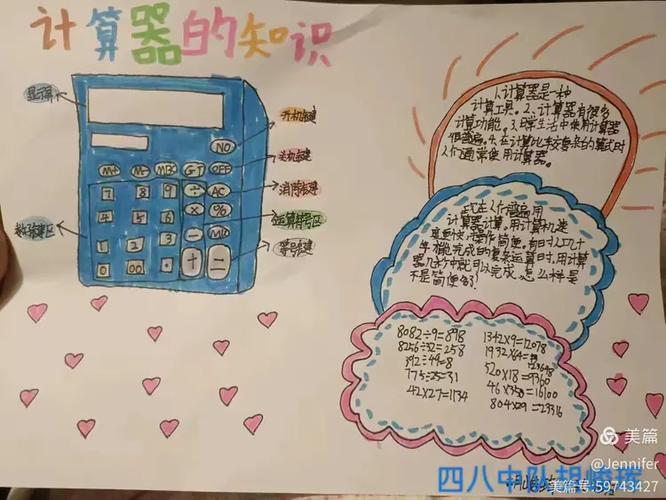 计算器的知识
显屏
开机键
关机键
消除键
数字键区
运算符号区
等号键
NO
M+
M-
MR
GT
OFF
7
8
9
÷
AC
4
5
6
×
%
1
2
3
-
MU
0
00
.
+
=
1.计算器是一种
计算工具。2.计算器有很多
计算功能。3.日常生活中使用计算器
很普遍。4.在计算比较复杂的算式时
人们通常使用计算器。
现在人们普遍用
计算器计算,用计算机速
度更快,操作简便,有时人工几十
年才能完成的复杂运算时,用计算
器几秒中就可以完成,怎么样是
不是简便多了!
8082÷9=898
8256÷32=258
392÷49=8
775÷25=31
42×27=1134
1342×9=12078
1932×64=
123648
520×18=9360
46×350=16100
804×29=23316
四八中队胡峻瑧
美篇
@Jennifer
美篇号:59743427